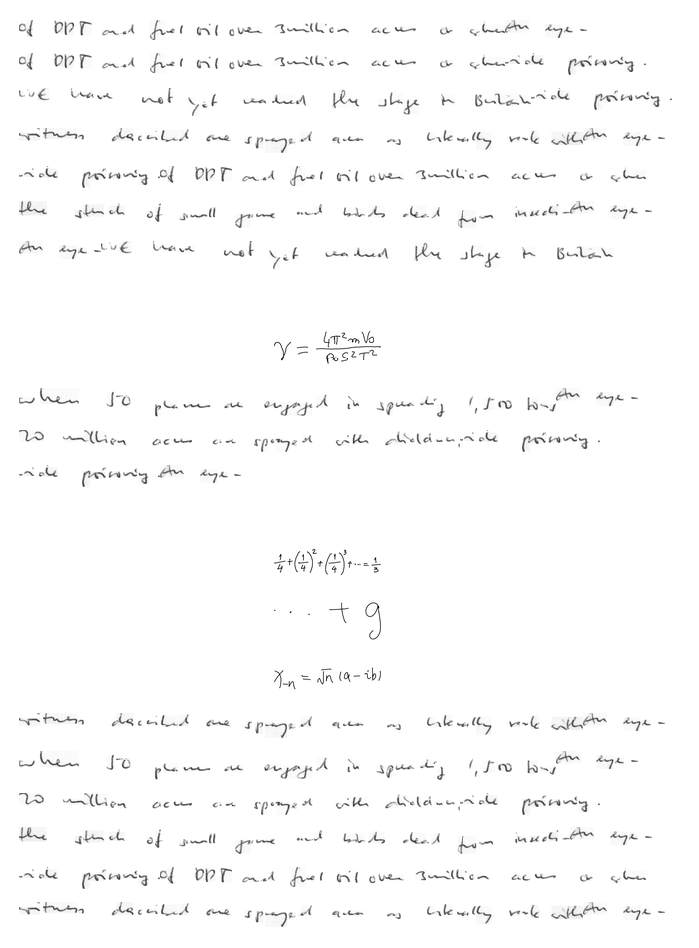 of DDT and fuel oil over 3 million acres or when An eye-
of DDT and fuel oil over 3 million acres or when -cide poisoning.
WE have not yet reached the stage in Britain -cide poisoning.
witness described one sprayed area as literally with An eye-
-cide poisoning of DDT and fuel oil over 3 million acres or when
the stench of small game and birds dead from insecti- An eye-
An eye- WE have not yet reached the stage in Britain
γ = \frac{4π²mV_0}{P_0S²T²}
when 50 planes are engaged in spreading 1,500 tons An eye-
20 million acres are sprayed with -cide poisoning.
-cide poisoning An eye-
\frac{1}{4}+(\frac{1}{4})^2+(\frac{1}{4})^3+...=\frac{1}{3}
... + g
X_{-n} = √n (a-ib)
witness described one sprayed area as literally with An eye-
when 50 planes are engaged in spreading 1,500 tons An eye-
20 million acres are sprayed with -cide poisoning.
the stench of small game and birds dead from insecti- An eye-
-cide poisoning of DDT and fuel oil over 3 million acres or when
witness described one sprayed area as literally with An eye-